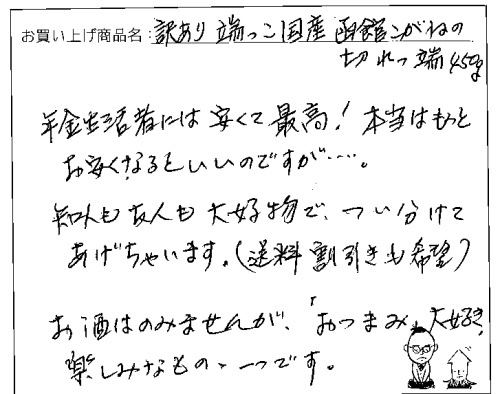 お買い上げ商品名：訳あり 端っこ 国産 函館こがねの
切れっ端 450g
年金生活者には 安くて 最高！ 本当はもっと
お安くなるといいのですが……。
知人も 友人も 大好物で、つい分けて
あげちゃいます。（送料 割引きも 希望）
お酒はのみませんが、「おつまみ」大好き
楽しみなもの、一つです。